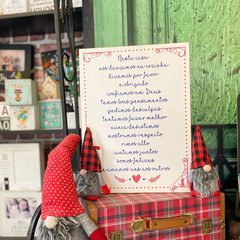 Nesta casa
nós dançamos na cozinha
dizemos por favor
e obrigado
confiamos em Deus
temos bons pensamentos
pedimos desculpas
tentamos fazer melhor
nunca desistimos
mostramos respeito
rimos alto
cantamos juntos
somos felizes
e amamos uns aos outros